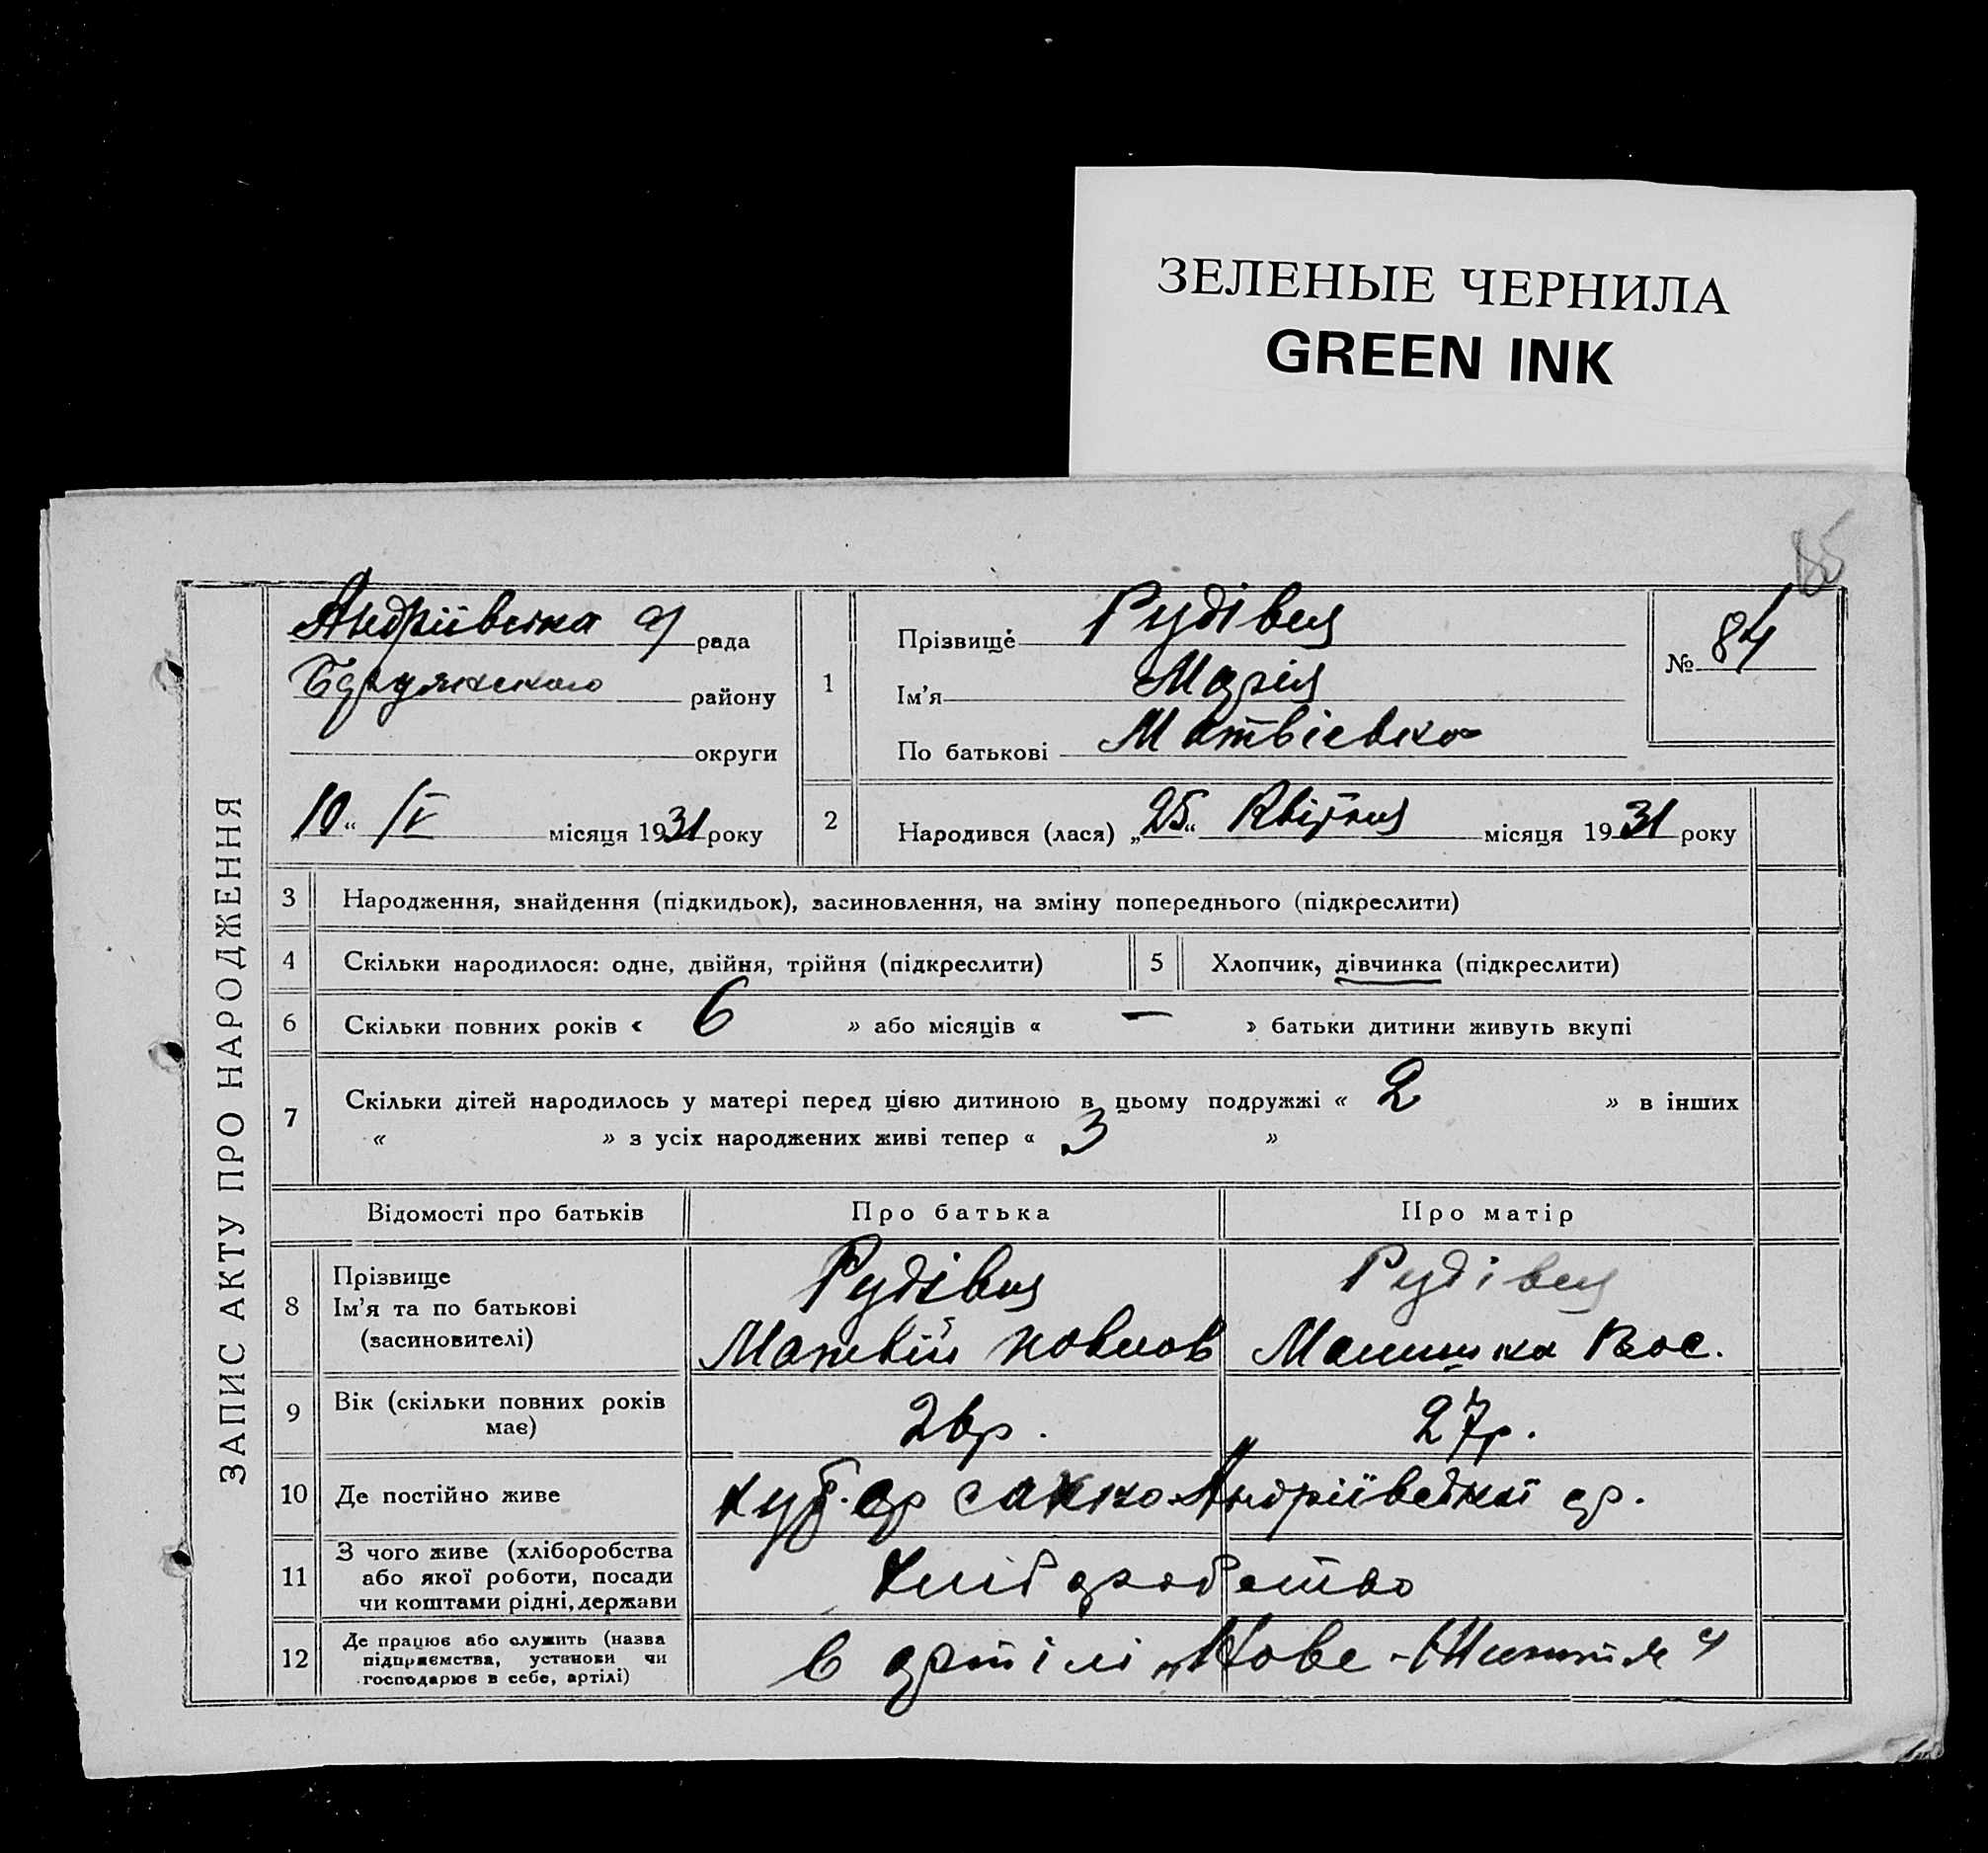 ЗЕЛЕНЫЕ ЧЕРНИЛА
GREEN INK
85
ЗАПИС АКТУ ПРО НАРОДЖЕННЯ
Андріївська с/рада
району
округи
10 “ IV місяця 1931 року
1
Прізвище Рудівця
Ім’я Марія
По батькові Матвієвна
№ 84
2 Народився (лася) „25“ Квітня місяця 1931 року
3 Народження, знайдення (підкидьок), засиновлення, на зміну попереднього (підкреслити)
4 Скільки народилося: одне, двійня, трійня (підкреслити)
5 Хлопчик, дівчинка (підкреслити)
6 Скільки повних років « 6 » або місяців « — » батьки дитини живуть вкупі
7 Скільки дітей народилось у матері перед цією дитиною в цьому подружжі « 2 » в інших
« » з усіх народжених живі тепер « 3 »
Відомості про батьків Про батька Про матір
8 Прізвище
Ім’я та по батькові
(засиновителі)
Рудівця
Матвій Павлов
Рудівця
Вас.
9 Вік (скільки повних років
має)
26р. 27р.
10 Де постійно живе
хут. Сакко Андріївської ср.
11 З чого живе (хліборобства
або якої роботи, посади
чи коштами рідні, держави
Хліборобство
12 Де працює або служить (назва
підприємства, установи чи
господарює в себе, артілі)
в артілі „Нове-Життя“